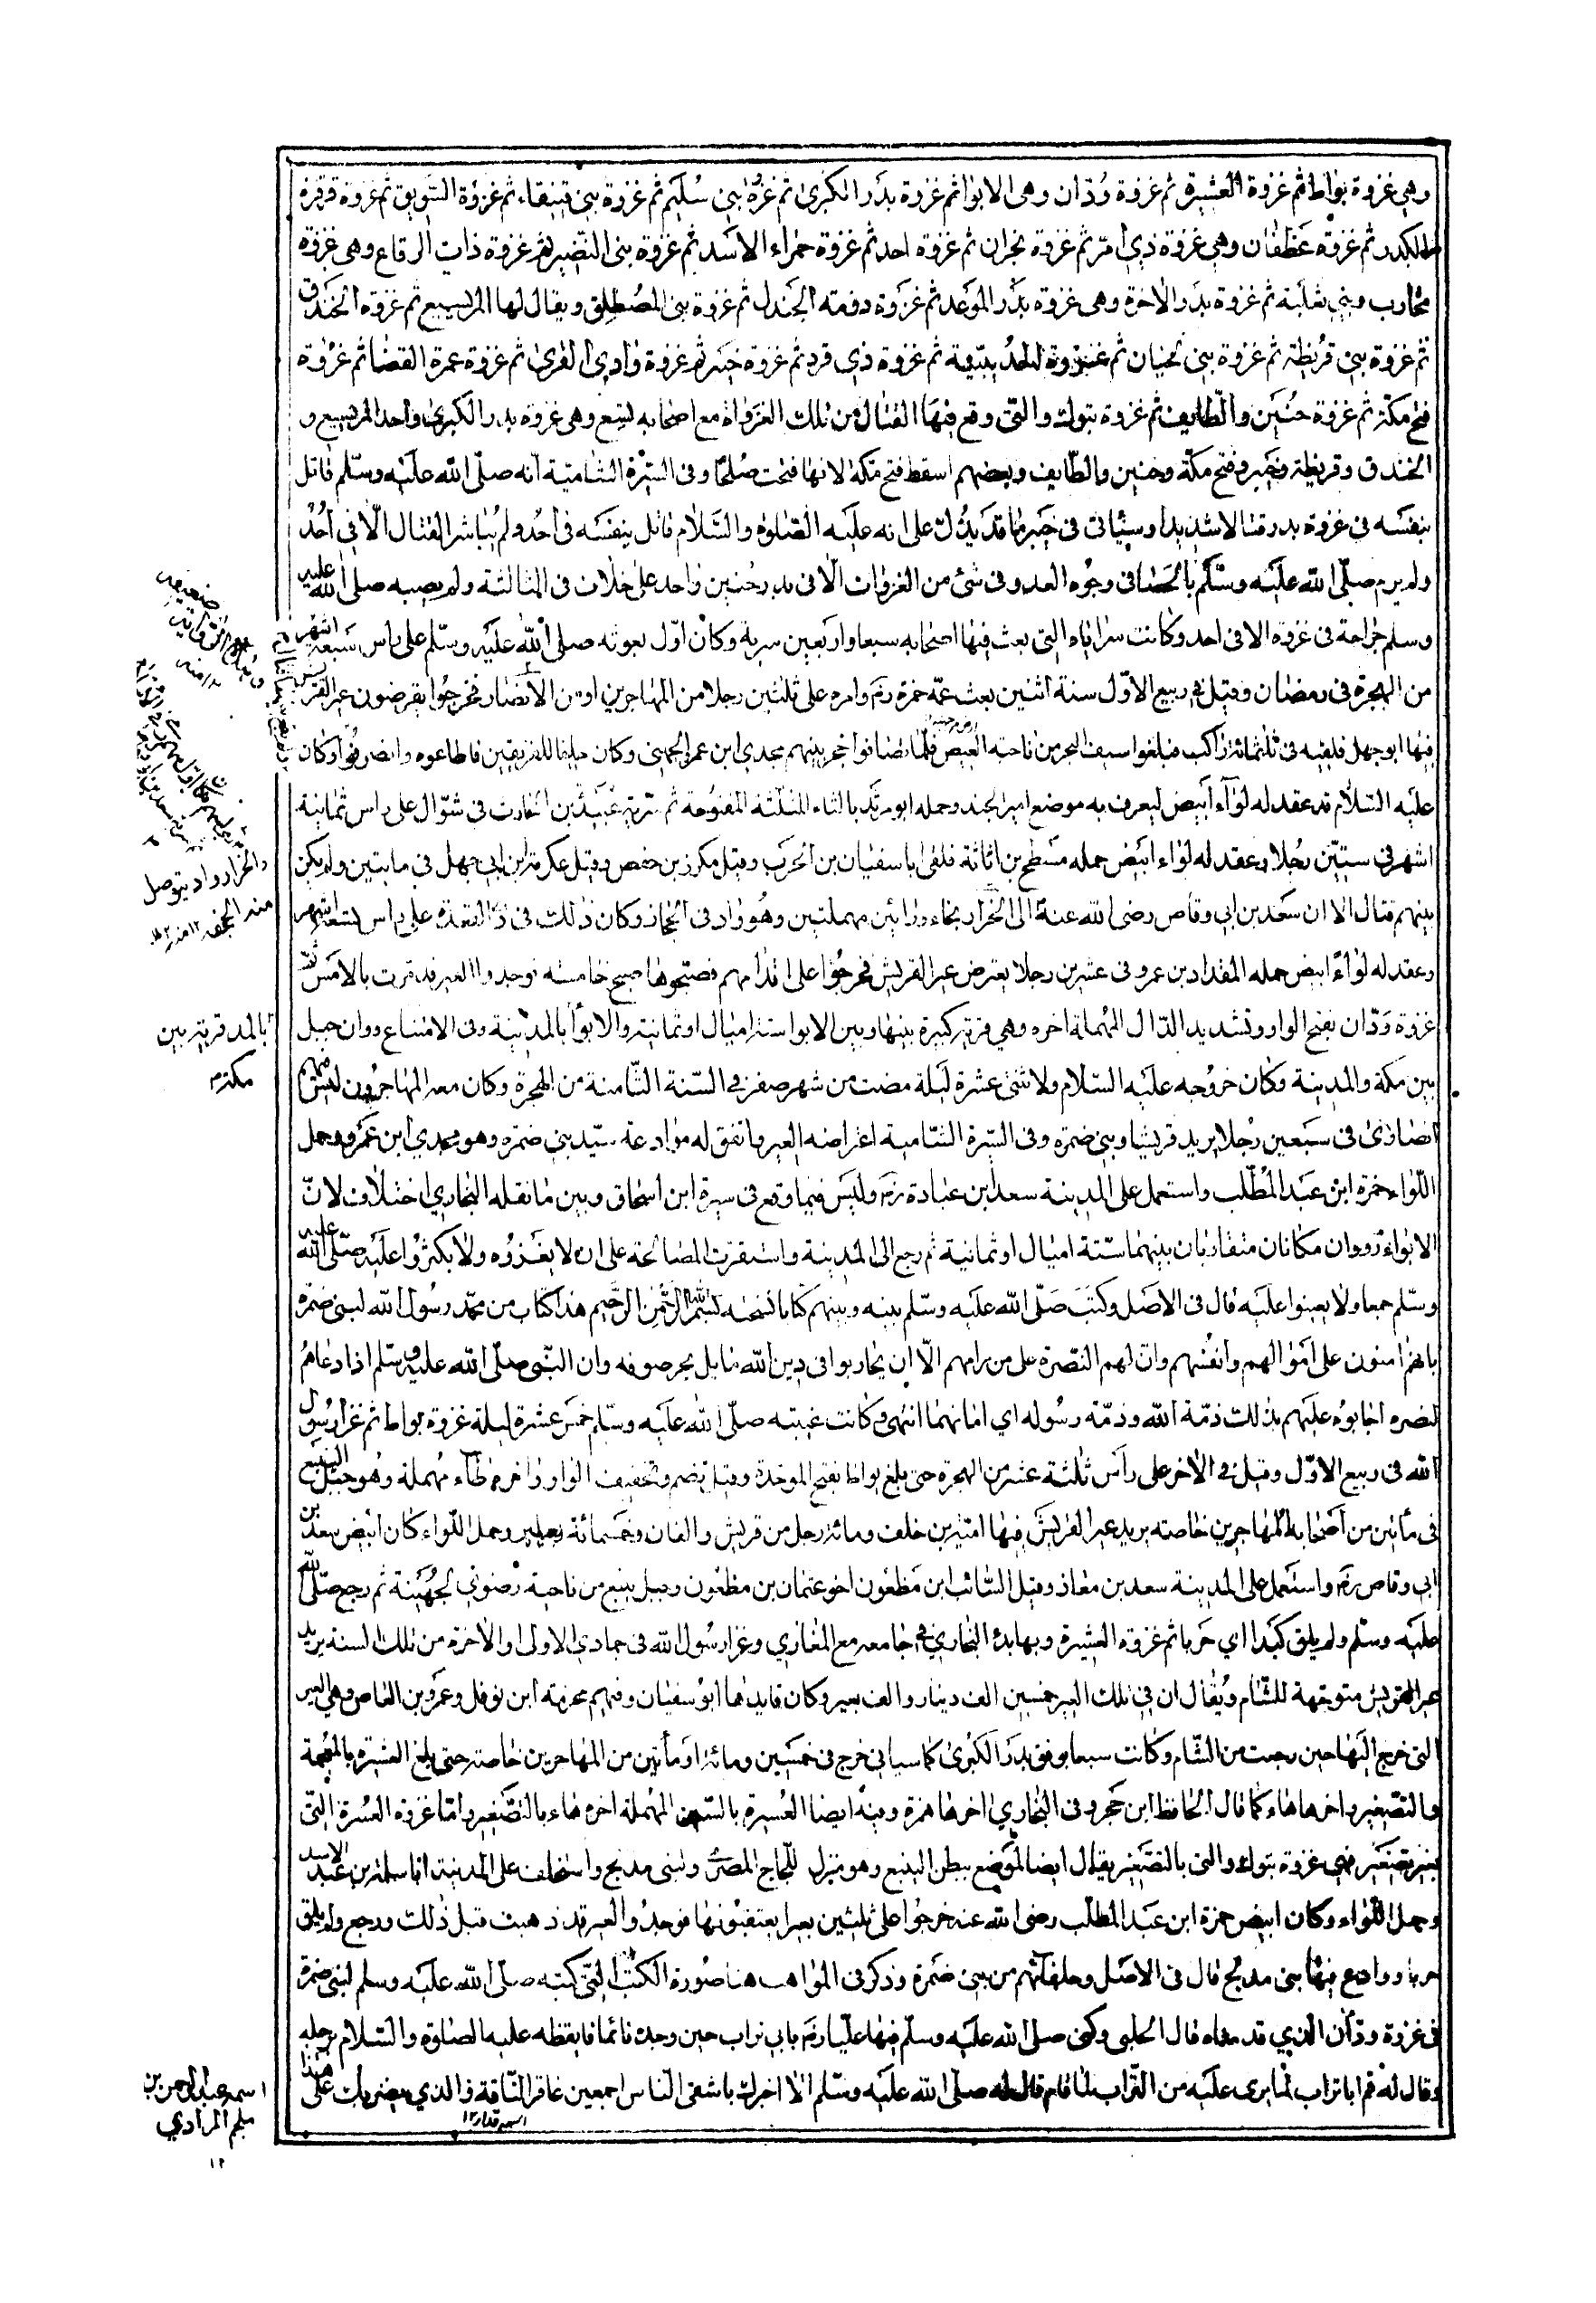 وهي غزوة بواط ثم غزوة العشيرة ثم غزوة ودّان وهى الابوا ثم غزوة بدر الكبرى ثم غزوة بنى سُليم ثم غزوة بني قينقاء ثم غزوة السّويق ثم غزوة قرقرة
الكدر ثم غزوة غطفان وهي غزوة ذي امرّ ثم غزوة نجران ثم غزوة احد ثم غزوة حمراء الاسد ثم غزوة بنى النّضير ثم غزوة ذات الرقاع وهى غزوة
محارب وبني ثعلبة ثم غزوة بدر الاخرة وهى غزوة بدر الموعد ثم غزوة دومة الجندل ثم غزوة بنى المصطلق ويقال لها المريسيع ثم غزوة الخندق
ثم غزوة بني قريظة ثم غزوة بني لحيان ثم غزوة الحديبية ثم غزوة ذي قرد ثم غزوة خيبر ثم غزوة وادي القرى ثم غزوة عمرة القضا ثم غزوة
فتح مكة ثم غزوة حنين والطّايف ثم غزوة تبوك والتى وقع فيها القتال من تلك الغزوات مع اصحابه تسع وهى غزوة بدر الكبرى واحد والمريسيع و
الخندق وقريظة وخيبر وفتح مكّة وحنين والطّايف وبعضهم اسقط فتح مكة لانها فتحت صُلحًا وفى السّيرة الشامية انه صلّى الله عليه وسلّم قاتل
بنفسه في غزوة بدر قتالا شديدا وسيأتى فى خيبر ما قد يدُلّ على انه عليه الصّلوة والسّلام قاتل بنفسه فى اُحُد ولم يُباشر القتال الّا فى اُحُد
ولم يرم صلّى الله عليه وسلّم بالحصا فى وجُوه العدو فى شئ من الغزوات الّا فى بدر وحُنين واحد على خلاف فى الثالثة ولم يصبه صلى الله عليه
وسلم جراحة فى غزوة الا فى احد وكانت سراياه التى بعث فيها اصحابه سبعا واربعين سرية وكان اوّل بعوثه صلى الله عليه وسلّم على راس سبعة اشهر
من الهجرة فى رمضان وقيل فى ربيع الاوّل سنة اثنين بعث عمّه حمزة رض وامره على ثلثين رجلا من المهاجرين او من الانصار فخرجُوا يعترضون عير القريش
فيها ابو جهل فلقيه فى ثلثمائة راكب فبلغوا سيف البحر من ناحية العيص فلمّا تصافوا حجز بينهم مجدي ابن عمرو الجهنى وكان حليفا للفريقين فاطاعوه وانصرفوا وكان
عليه السّلام قد عقد له لوآء ابيض ليعرف به موضع امير الجند وحمله ابو مرثد بالثاء المثلثة المفتوحة ثم سرية عُبيدة بن الحارث فى شوّال على راس ثمانية
اشهر فى ستّين رجُلا وعقد له لواء ابيض حمله مسطح بن اثاثة فلقى اباسفيان بن الحرب وقيل مكرز بن حفص وقيل عكرمة ابن ابي جهل في مايتين ولم يكن
بينهم قتال الا ان سعد بن ابي وقاص رضى الله عنه الى الخرار بخاء ورائين مهملتين وهُو واد فى الحجاز وكان ذلك فى ذي القعدة على راس تسعة اشهر
وعقد له لواءً ابيض حمله المقداد بن عمرو فى عشرين رجلا يعترض عير القريش فخرجُوا على اقدامهم فصبّحوها صبح خامسه فوجدوا العير قد مرت بالامس ثم
غزوة وَدّان بفتح الواو وتشديد الدّال المُهملة اخره وهي قرية كبيرة بينها وبين الابوا ستة اميال او ثمانية والابوا بالمدينة وفى الامتناع ودان جبل
بين مكة والمدينة وكان خروُجه عليه السّلام ولاثنى عشرة ليلة مضت من شهر صفر فى السّنة الثّامنة من الهجرة وكان معه المهاجرُون ليس فيهم
انصارىّ فى سبعين رجُلا يريد قريشا وبنى ضمرة وفى السّيرة الشّامية اغراضه العير فاتفق له موادعة سيّد بنى ضمرة وهو مجدي ابن عمرو وحمل
اللّواء حمزة ابن عبد المُطّلب واستعمل على المدينة سعد ابن عبادة رض وليس فيما وقع فى سيرة ابن اسحاق وبين ما نقله البخاري اختلاف لانّ
الابواء وودان مكانان متقاربان بينهما ستّة اميال او ثمانية ثم رجع الى المدينة واستقرت المصالحة على ان لا يغزُوه ولا يكثرُوا عليه صلّى الله عليه
وسلّم جمعا ولا يعينوا عليه قال فى الاصل وكتب صَلّى الله عليه وسلّم بينه وبينهم كتابا نسخته بسم الله الرحمن الرّحيم هذا كتاب من محمّد رسُول الله لبنى ضمرة
بانهم امنون على اموالهم وانفُسهم وانّ لهم النّصرة على من رامهم الّا ان يحاربوا فى دين الله ما بل بحر صوفه وان النّبى صلّى الله عليه وسلم اذا دعاهُم
لنصره اجابوُه عليهم بذلك ذمّة الله وذمّة رسُوله اي امانهما انتهى وكانت غيبته صلّى الله عليه وسلّم خمس عشرة ليلة غزوة بواط ثم غزا رسُول
الله فى ربيع الاوّل وقيل فى الاخر على رأس ثلثة عشر من الهجرة حتى بلغ بواط بفتح الموحّدة وقيل بضم وتخفيف الواو واخره طاء مُهملة وهُو جبل الينبع
فى مأتين من اصحابه المهاجرين خاصته يريد عير القريش فيها اميّة بن خلف ومائة رجل من قريش والفان وخمسمائة بعير وحمل اللّواء كان ابيض سعد بن
ابي وقاص رض واستعمل على المدينة سعد بن معاذ وقيل السّائب ابن مظعون اخو عثمان بن مظعون وجبل ينبع من ناحية رضوى لجُهينة ثم رجع صلّى الله
عليه وسلّم ولم يلق كيدا اي حربا ثم غزوة العشيرة وبها بدء البخاري فى جامعه مع المغازي وغزا رسُول الله فى جمادي الاولى او الاخرة من تلك السنة يريد
عير القريش متوجّهة للشّام ويُقال ان فى تلك العير خمسين الف دينار والف بعير وكان قايدها ابو سفيان وفيهم مخرمة ابن نوفل وعمرو بن العاص وهي العير
التى خرج اليها حين رجعت من الشّام وكانت سببا وقوع بدر الكبرى كما سياتي خرج فى خمسين ومائة او مأتين من المهاجرين خاصة حتى بلغ العشيرة بالمعجمة
والتصغير واخرها هاء كما قال الحافظ ابن حجر وفى البخاري اخرها همزة وفيه ايضا العُسيرة بالسّين المُهملة اخره هاء بالتّصغير وامّا غزوة العُسرة التى
بغير تصغير فهي غزوة تبوك والتى بالتصغير يقال ايضا لموضع ببطن الينبع وهو منزل للحاج المصرى ولبنى مدلج واستخلف على المدينة ابا سلمة بن عبد الاسد
وحمل اللّواء وكان ابيض حمزة ابن عبد المطلب رضى الله عنه خرجُوا على ثلثين بعيرا يعتقبُونها فوجدُوا العير قد ذهبت قبل ذلك ورجع ولم يلق
حربا ووادع فيها بنى مدلج قال فى الاصل وحلفائهم من بنى ضمرة وذكر فى المواهب هنا صُورة الكتاب التّى كتبه صلّى الله عليه وسلم لبنى ضمرة
فى غزوة ودّان الذي قد مناه قال الحلبى وكنى صلى الله عليه وسلّم فيها عليّا رض بابى تراب حين وجده نائما فايقظه عليه الصلوة والسّلام برجله
وقال له قم اباتراب لما يرى عليه من التّراب لما قام قال له صلّى الله عليه وسلّم الا اخبرك باشقى النّاس اجمعين عاقر النّاقة والذي يضربك على هذا
اسمه قدار ١٢
والخرار واد يتوصل
منه الجحفه ١٢ منه
بالمد قرية بين
مكة
اسمه عبدالرحمن بن
ملجم المرادي
١٢